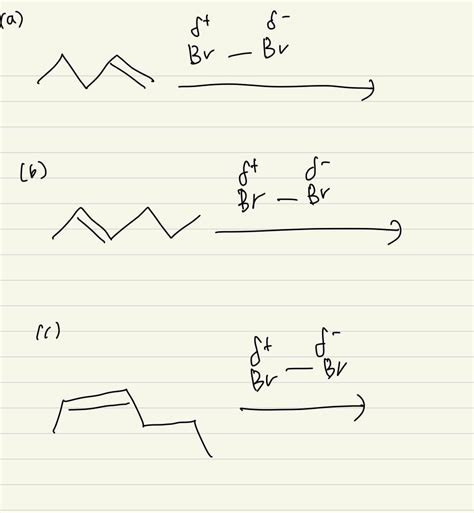 (a)
δ+ δ-
Br — Br
(b)
δ+ δ-
Br — Br
(c)
δ+ δ-
Br — Br